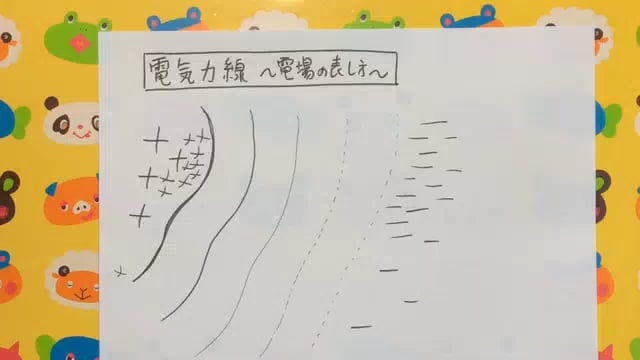 電気力線 ~電場の表し方~